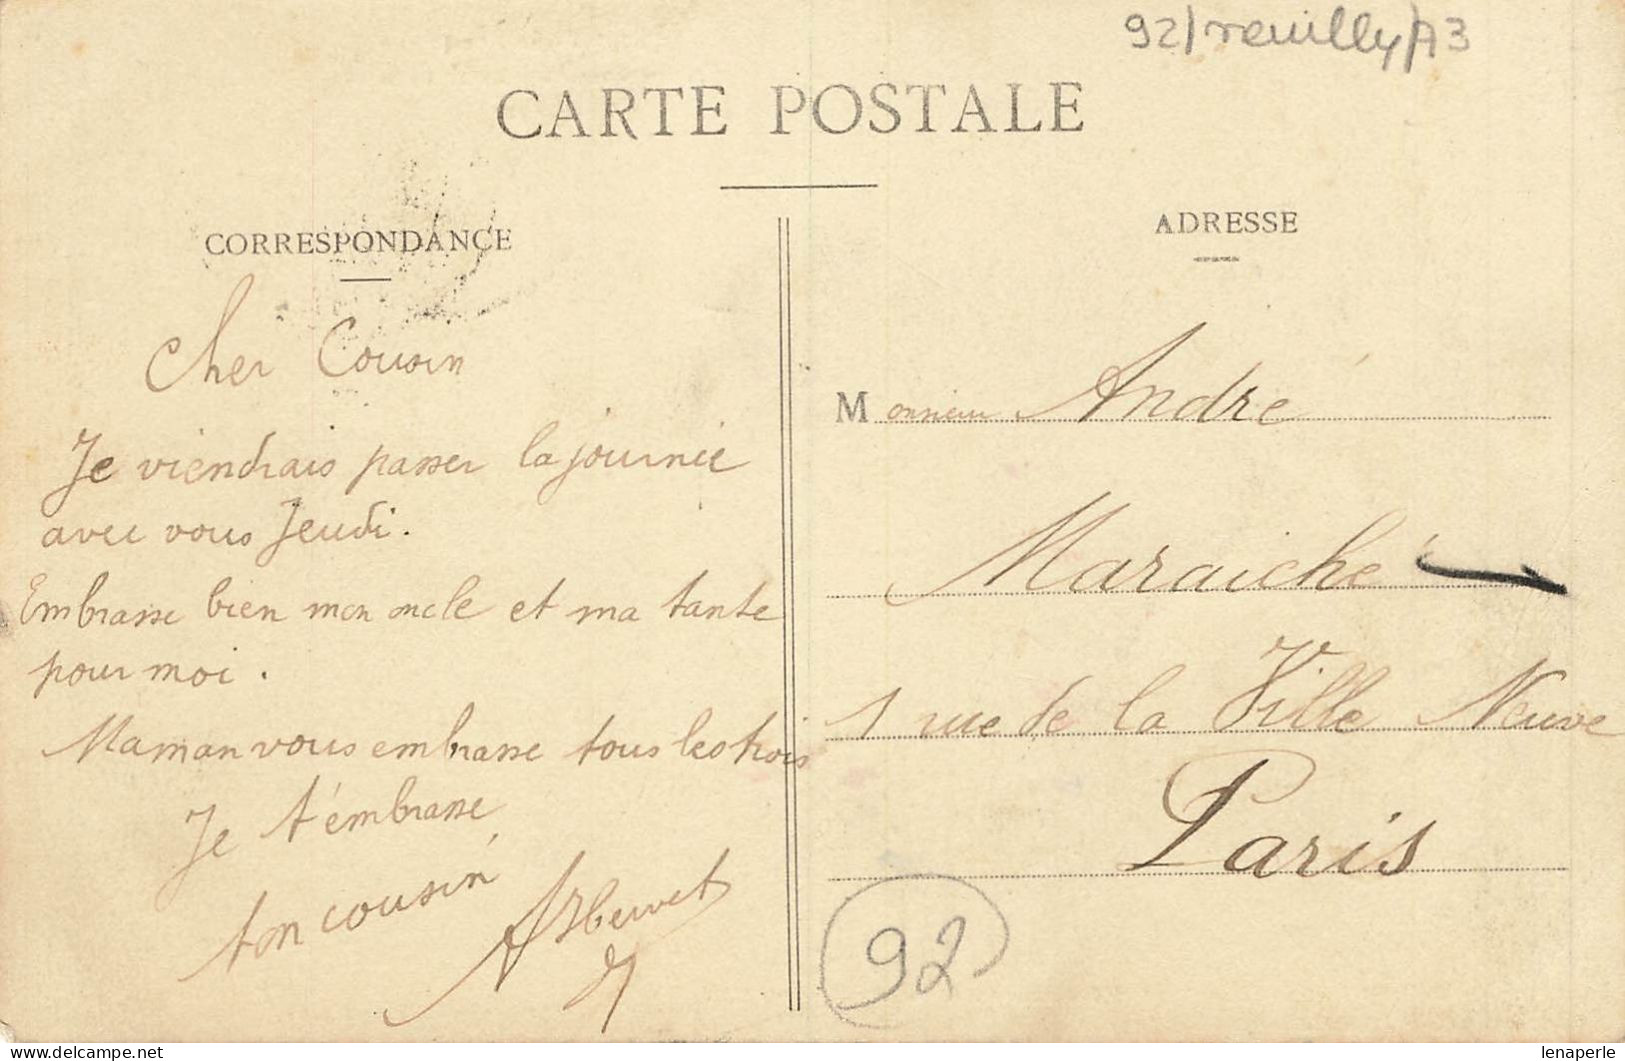 92/neuilly/A3
CARTE POSTALE
CORRESPONDANCE
Cher Cousin
Je viendrais passer la journée
avec vous Jeudi.
Embrasse bien mon oncle et ma tante
pour moi.
Maman vous embrasse tous les trois
Je t'embrasse
ton cousin
ADRESSE
Monsieur André
Maraiché
1 rue de la Ville Neuve
Paris
92
lenaperle